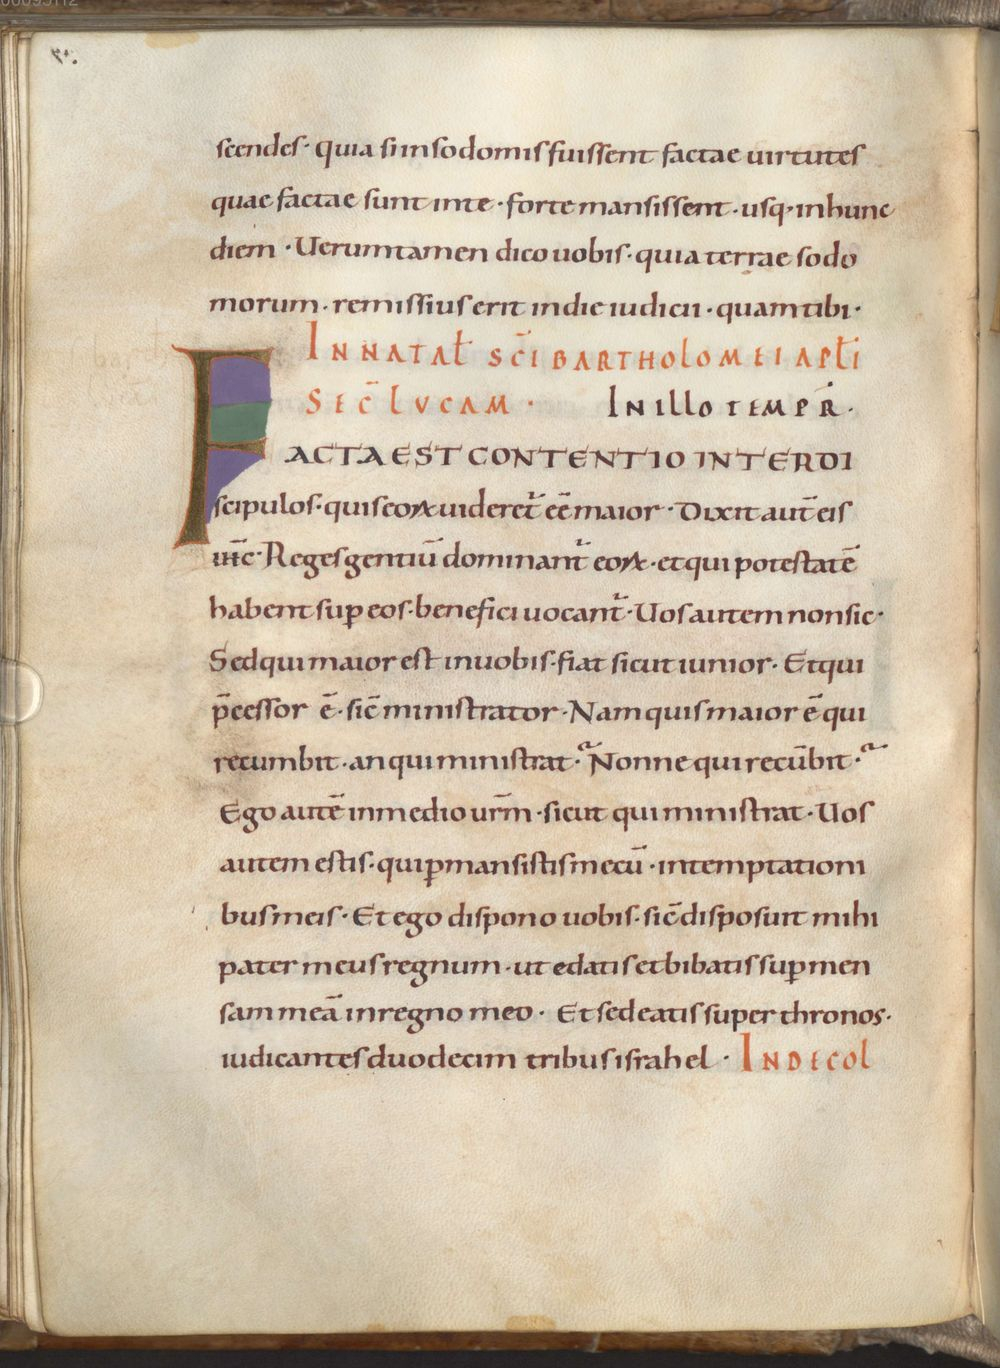 scendes· quia si in sodomis fuissent factae uirtutes
quae factae sunt in te· forte mansissent· usq· in hunc
diem· Uerumtamen dico uobis· quia terrae sodo
morum· remissius erit in die iudicii· quam tibi·
IN NATAƚ SC̄I BARTHOLOMEI APƚI
SEC̄ LUCAM· IN ILLO TEMPR̄·
FACTA EST CONTENTIO INTER DI
scipulos· qui seoꝝ uideret᷑ eē maior· Dixit aut̄ eis
ih̄c· Reges gentiū dominant᷑ eoꝝ· et qui potestatē
habent sup̱ eos· benefici uocant᷑· Uos autem non sic·
Sed qui maior est in uobis· fiat sicut iunior· Et qui
p̄cessor ē· sic̄ ministrator· Nam quis maior ē qui
recumbit· an qui ministrat· Nonne qui recūbit·
Ego autē in medio ur̄m· sicut qui ministrat· Uos
autem estis· qui ꝑmansistis mecū· in temptationi
bus meis· Et ego dispono uobis· sic̄ disposuit mihi
pater meus regnum· ut edatis et bibatis suꝑ men
sam meā in regno meo· Et sedeatis super thronos·
iudicantes duodecim tribus israhel· IN DECOL